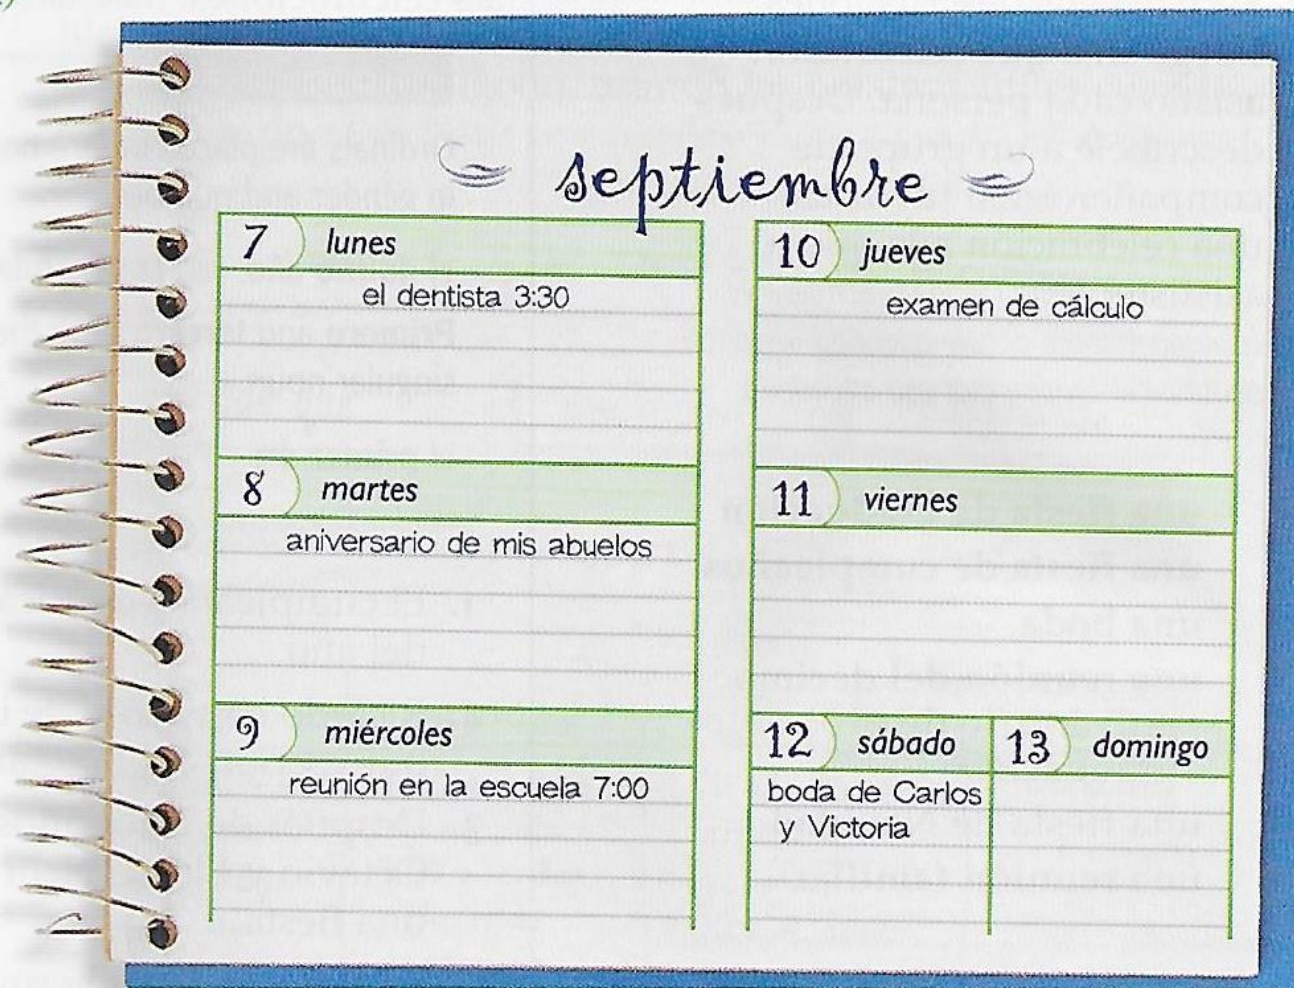 septiembre
7 lunes
el dentista 3:30
8 martes
aniversario de mis abuelos
9 miércoles
reunión en la escuela 7:00
10 jueves
examen de cálculo
11 viernes
12 sábado
boda de Carlos
y Victoria
13 domingo